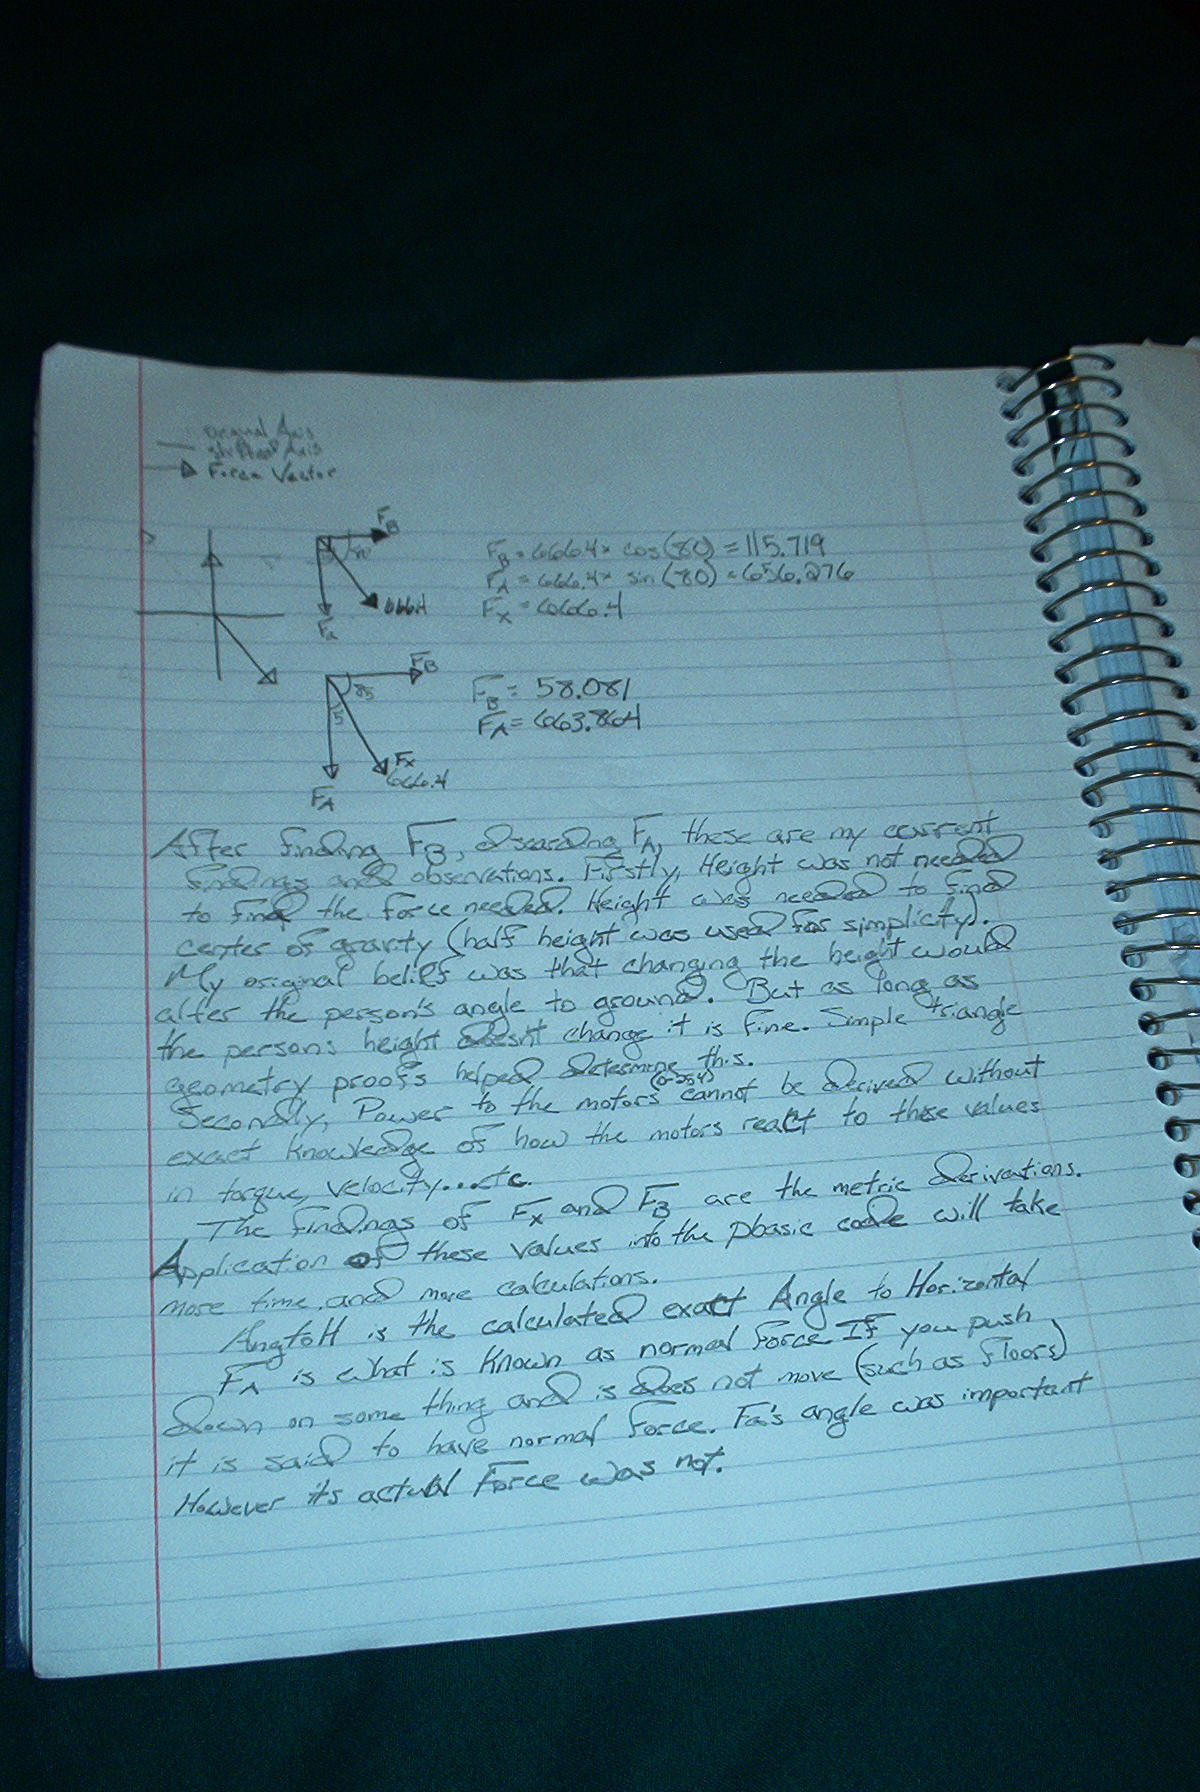 Original Axis
Shifted Axis
Force Vector
FB
80
666.4
FA
FB = 666.4 * cos(80) = 115.719
FA = 666.4 * sin(80) = 656.276
Fx = 666.4
FB
85
5
Fx
666.4
FA
FB = 58.081
FA = 663.864
After finding FB, discarding FA, these are my current
findings and observations. Firstly, Height was not needed
to find the force needed. Height was needed to find
center of gravity (half height was used for simplicity).
My original belief was that changing the height would
alter the person's angle to ground. But as long as
the persons height doesn't change it is fine. Simple triangle
geometry proofs helped determine this.
Secondly, Power to the motors (0-254) cannot be derived without
exact knowledge of how the motors react to these values
in torque, velocity...etc.
The findings of Fx and FB are the metric derivations.
Application of these values into the pbasic code will take
more time and more calculations.
AngtoH is the calculated exact Angle to Horizontal
FA is what is known as normal force If you push
down on some thing and is does not move (such as floors)
it is said to have normal force. Fa's angle was important
However its actual force was not.